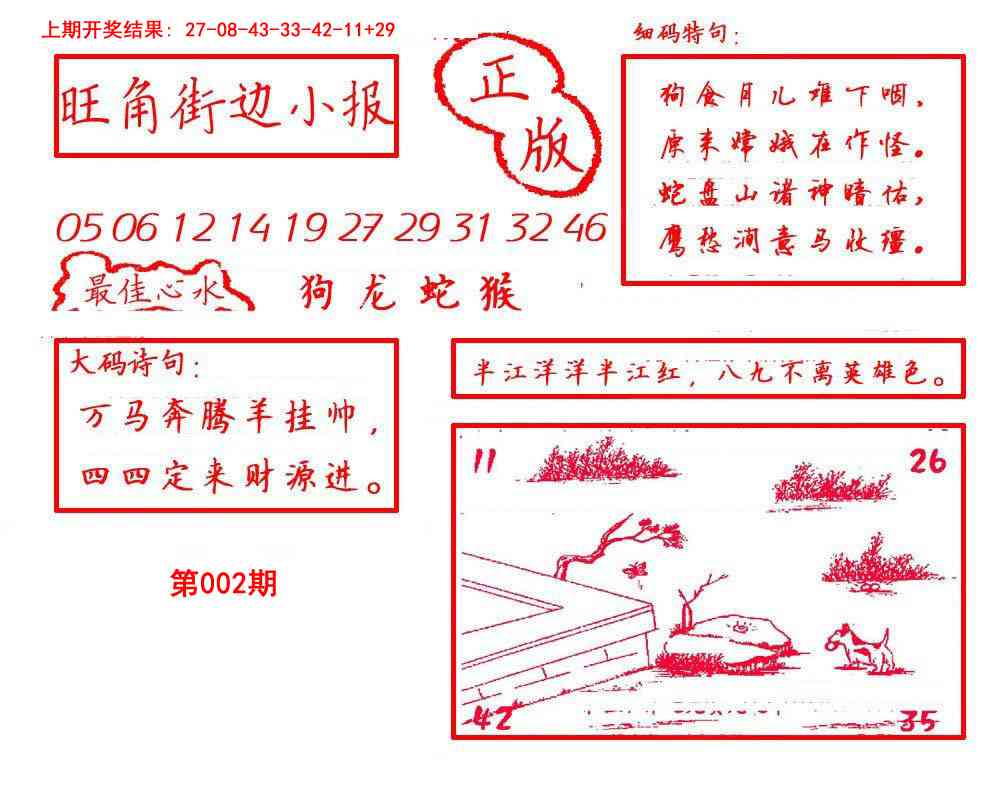 上期开奖结果：27-08-43-33-42-11+29
旺角街边小报
正版
05 06 12 14 19 27 29 31 32 46
最佳心水
狗龙蛇猴
细码特句：
狗食月儿难下咽，
原来嫦娥在作怪。
蛇盘山诸神暗佑，
鹰愁涧意马收缰。
大码诗句：
万马奔腾羊挂帅，
四四定来财源进。
第002期
半江洋洋半江红，八九不离英雄色。
11
26
42
35